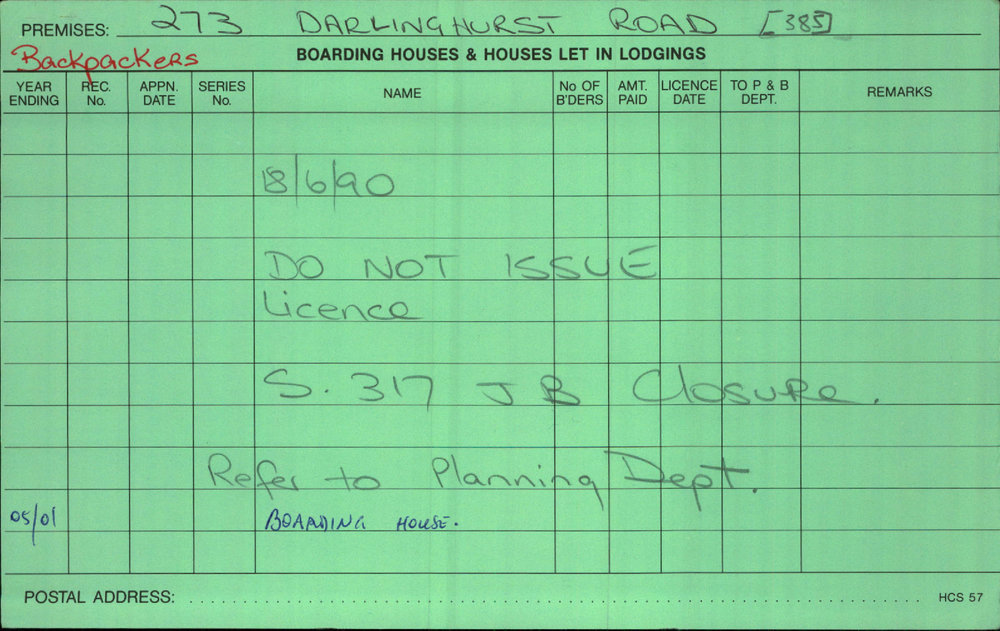 PREMISES: 273 DARLINGHURST ROAD [385]
Backpackers
BOARDING HOUSES & HOUSES LET IN LODGINGS
YEAR ENDING REC. No. APPN. DATE SERIES No. NAME No OF B'DERS AMT. PAID LICENCE DATE TO P & B DEPT. REMARKS
18/6/90
DO NOT ISSUE
Licence
S. 317 J B Closure.
Refer to Planning Dept.
05/01 BOARDING HOUSE.
POSTAL ADDRESS: HCS 57